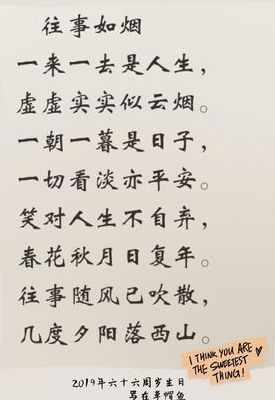 往事如烟
一来一去是人生，
虚虚实实似云烟。
一朝一暮是日子，
一切看淡亦平安。
笑对人生不自弃，
春花秋月日复年。
往事随风已吹散，
几度夕阳落西山。
I THINK YOU ARE
THE SWEETEST
THING!
2019年六十六周岁生日
写在草帽鱼